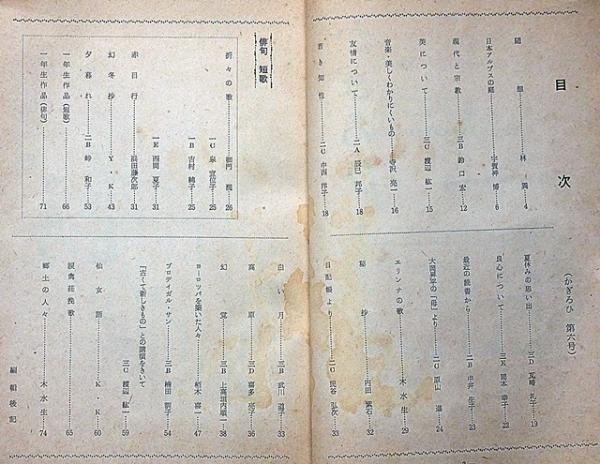 目次
(かぎろひ 第六号)
随想……林 4
日本アルプスの話……宇賀神 博 6
現代と宗教……三B 鈴口 宏 12
美について……三C 渡辺 紘一 15
音楽・美しくわかりにくいもの……寺沢 亮一 16
友情について……二A 辰巳 邦子 18
若き知性……二C 中西 邦子 18
夏休みの思い出……三D 瓦崎 礼子 19
良心について……三E 岡本 幸子 23
最近の読書から……二B 中井 佳子 23
大岡昇平の「母」より……二C 原山 24
エリンナの歌……木水生 29
秘抄……内田 32
日記帳より……二C 長谷 弘次 33
白い月……三B 武川 33
高原……三D 喜多 亮子 36
幻覚……三B 上高垣内順一 38
ヨーロッパを築いた人々……植木 喜一 47
ブロディイボル・サン……三B 楠田 順子 54
「古くて新しきもの」との講演をきいて……三C 渡辺 紘一 59
仙女譚……K K 60
渓禽荘挽歌……65
郷土の人々……木水生 74
編輯後記
俳句 短歌
折々の歌……御門 26
一C 泉 宣位子……25
一B 吉村 綾子……25
一E 西岡 夏子……31
赤目行……浜田藤次郎 31
幻冬抄……Y・K 43
夕暮れ……二B 峠 和子 53
一年生作品(短歌)……66
一年生作品(俳句)……71